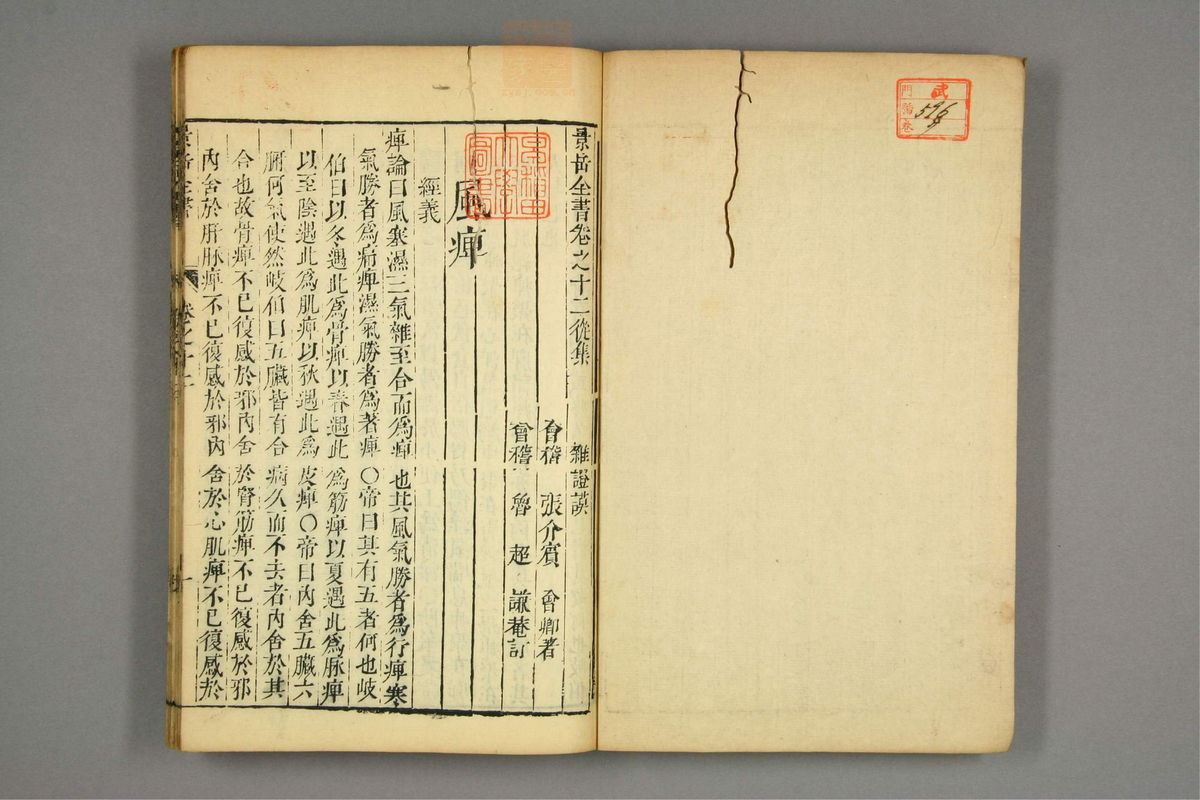 武
門
號
卷
596
景岳全書卷之十二從集 雜證謨
會稽 張介賓 會卿著
會稽 魯 超 謙菴訂
風痺
經義
痺論曰風寒濕三氣雜至合而為痺也其風氣勝者為行痺寒
氣勝者為痛痺濕氣勝者為著痺〇帝曰其有五者何也岐
伯曰以冬遇此為骨痺以春遇此為筋痺以夏遇此為脉痺
以至陰遇此為肌痺以秋遇此為皮痺〇帝曰內舍五臟六
腑何氣使然岐伯曰五臟皆有合病久而不去者內舍於其
合也故骨痺不已復感於邪內舍於腎筋痺不已復感於邪
內舍於肝脉痺不已復感於邪內舍於心肌痺不已復感於
景岳全書
卷之十二
一